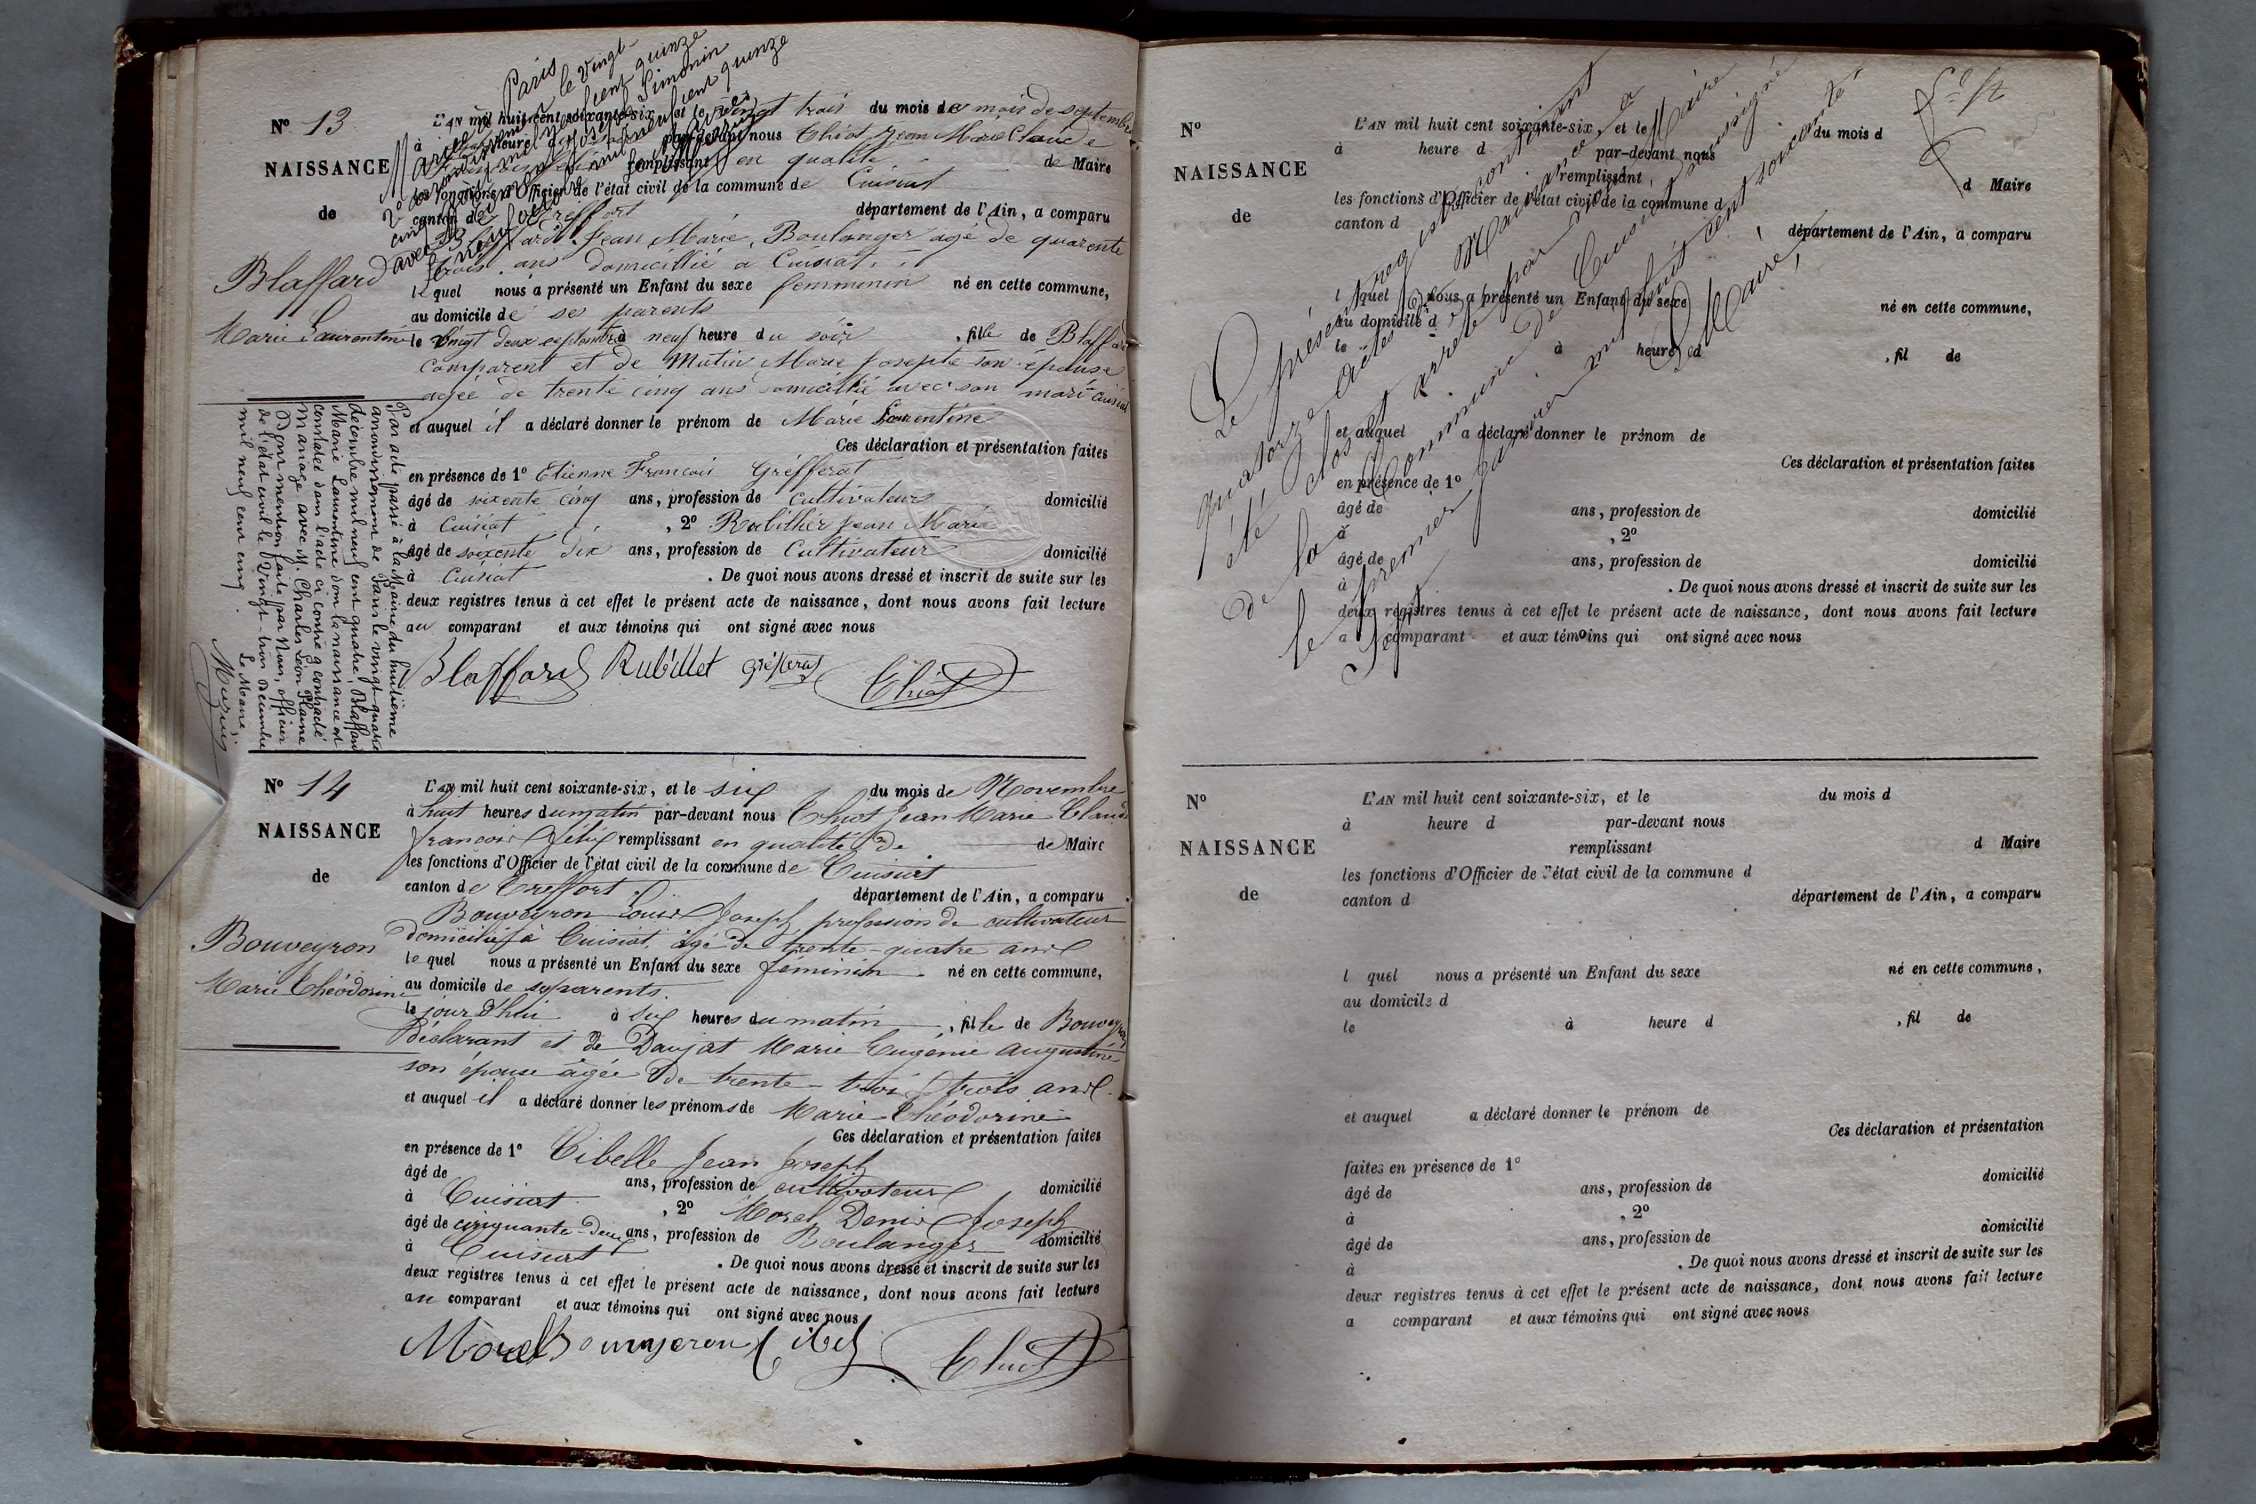 Nº 13
NAISSANCE
de
Blaffard
Marie Laurentine
Paris
L'AN mil huit cent soixante-six, et le vingt trois du mois de mois de septembre
par-devant nous Chiot Jean Marie Claude
remplissant en qualité de Maire
les fonctions d'Officier de l'état civil de la commune de Cuisiat
canton de Treffort département de l'Ain, a comparu
Blaffard Jean Marie, Boulanger agé de quarente
trois ans domicillié a Cuisiat
le quel nous a présenté un Enfant du sexe femminin né en cette commune,
au domicile de ses parents
le vingt deux septembre à neuf heure du soir, fille de Blaffard
comparent et de Mutin Marie Josepte son épouse
agée de trente cinq ans domicillié avec son mari Cuisiat
et auquel il a déclaré donner le prénom de Marie Laurentine
Ces déclaration et présentation faites
en présence de 1º Etienne François Grefferat
âgé de soixente cinq ans, profession de cultivateur domicilié
à Cuisiat, 2º Rubillier Jean Marie
âgé de soixente dix ans, profession de Cultivateur domicilié
à Cuisiat. De quoi nous avons dressé et inscrit de suite sur les
deux registres tenus à cet effet le présent acte de naissance, dont nous avons fait lecture
au comparant et aux témoins qui ont signé avec nous
Blaffard Rubillet Grefferat Chiot
Par acte passé à la Mairie du huitième
arrondissement de Paris le vingt-quatre
décembre mil neuf cent quatre, Blaffard
Marie Laurentine dont la naissance est
constatée dans l'acte ci contre a contracté
mariage avec M. Charles Léon Plaine
Dont mention faite par Nous, officier
de l'état civil le vingt-trois Décembre
mil neuf cent cinq.
Le Maire,
Nº 14
NAISSANCE
de
Bouveyron
Marie Théodorine
L'AN mil huit cent soixante-six, et le six du mois de Novembre
à huit heures du matin par-devant nous Chiot Jean Marie Claude
françois Félix remplissant en qualité de de Maire
les fonctions d'Officier de l'état civil de la commune de Cuisiat
canton de Treffort département de l'Ain, a comparu
Bouveyron Louis Joseph profession de cultivateur
domicilié à Cuisiat, âgé de trente-quatre ans
le quel nous a présenté un Enfant du sexe féminin né en cette commune,
au domicile de ses parents.
le jour d'hui à six heures du matin, fille de Bouveyron
Déclarant et de Daujat Marie Eugénie Augustine
son épouse âgée de trente-trois trois ans
et auquel il a déclaré donner les prénoms de Marie Théodorine
Ces déclaration et présentation faites
en présence de 1º Cibelle Jean Joseph
âgé de ans, profession de cultivateur domicilié
à Cuisiat, 2º Morel Denis Joseph
âgé de cinquante-deux ans, profession de Boulanger domicilié
à Cuisiat. De quoi nous avons dressé et inscrit de suite sur les
deux registres tenus à cet effet le présent acte de naissance, dont nous avons fait lecture
au comparant et aux témoins qui ont signé avec nous
Morel Bouveyron Cibel Chiot
Le présent registre contenant
quatorze actes de Naissance a
été clos et arrêté par nous Maire
de la Commune de Cuisiat soussigné
le premier janvier mil huit cent soixante
sept
Le Maire,
Nº
NAISSANCE
de
L'AN mil huit cent soixante-six, et le du mois d
à heure d par-devant nous
remplissant d Maire
les fonctions d'Officier de l'état civil de la commune d
canton d département de l'Ain, a comparu
l quel nous a présenté un Enfant du sexe né en cette commune,
au domicile d
le à heure d, fil de
et auquel a déclaré donner le prénom de
Ces déclaration et présentation faites
en présence de 1º
âgé de ans, profession de domicilié
à, 2º
âgé de ans, profession de domicilié
à. De quoi nous avons dressé et inscrit de suite sur les
deux registres tenus à cet effet le présent acte de naissance, dont nous avons fait lecture
a comparant et aux témoins qui ont signé avec nous
Nº
NAISSANCE
de
L'AN mil huit cent soixante-six, et le du mois d
à heure d par-devant nous
remplissant d Maire
les fonctions d'Officier de l'état civil de la commune d
canton d département de l'Ain, a comparu
l quel nous a présenté un Enfant du sexe né en cette commune,
au domicile d
le à heure d, fil de
et auquel a déclaré donner le prénom de
Ces déclaration et présentation
faites en présence de 1º domicilié
âgé de ans, profession de
à, 2º
âgé de ans, profession de domicilié
à. De quoi nous avons dressé et inscrit de suite sur les
deux registres tenus à cet effet le présent acte de naissance, dont nous avons fait lecture
a comparant et aux témoins qui ont signé avec nous